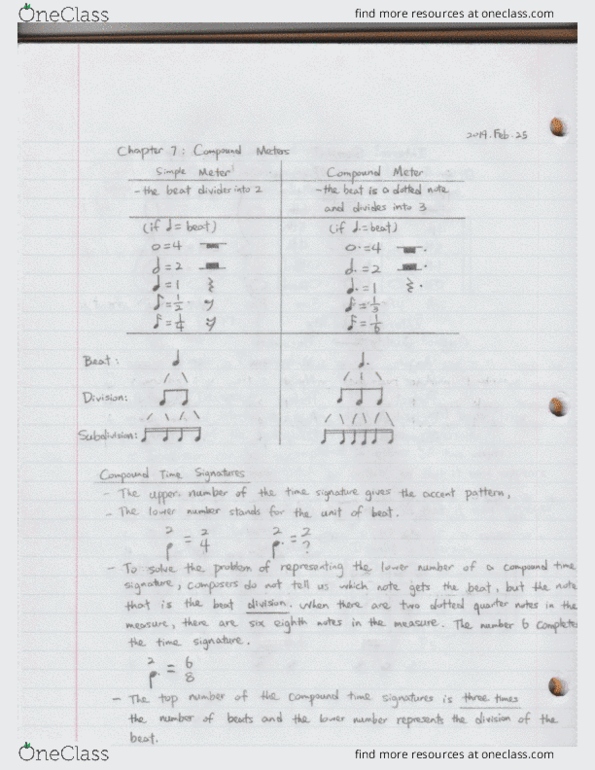 OneClass
find more resources at oneclass.com
2019. Feb. 25
Chapter 7: Compound Meters
Simple Meter
Compound Meter
- the beat divides into 2
- the beat is a dotted note
and divides into 3
(if ♩= beat)
(if ♩.= beat)
𝅝 = 4
𝅝. = 4
𝅗𝅥 = 2
𝅗𝅥. = 2
♩ = 1
♩. = 1
♪ = 1/2
♪ = 1/3
𝅘𝅥𝅯 = 1/4
𝅘𝅥𝅯 = 1/6
Beat:
Division:
Subdivision:
Compound Time Signatures
- The upper number of the time signature gives the accent pattern,
- The lower number stands for the unit of beat.
2/♩ = 2/4
2/♩. = 2/?
- To solve the problem of representing the lower number of a compound time
signature, composers do not tell us which note gets the beat, but the note
that is the beat division. When there are two dotted quarter notes in the
measure, there are six eighth notes in the measure. The number 6 complete
the time signature.
2/♩. = 6/8
- The top number of the compound time signatures is three times
the number of beats and the lower number represents the division of the
beat.
OneClass
find more resources at oneclass.com